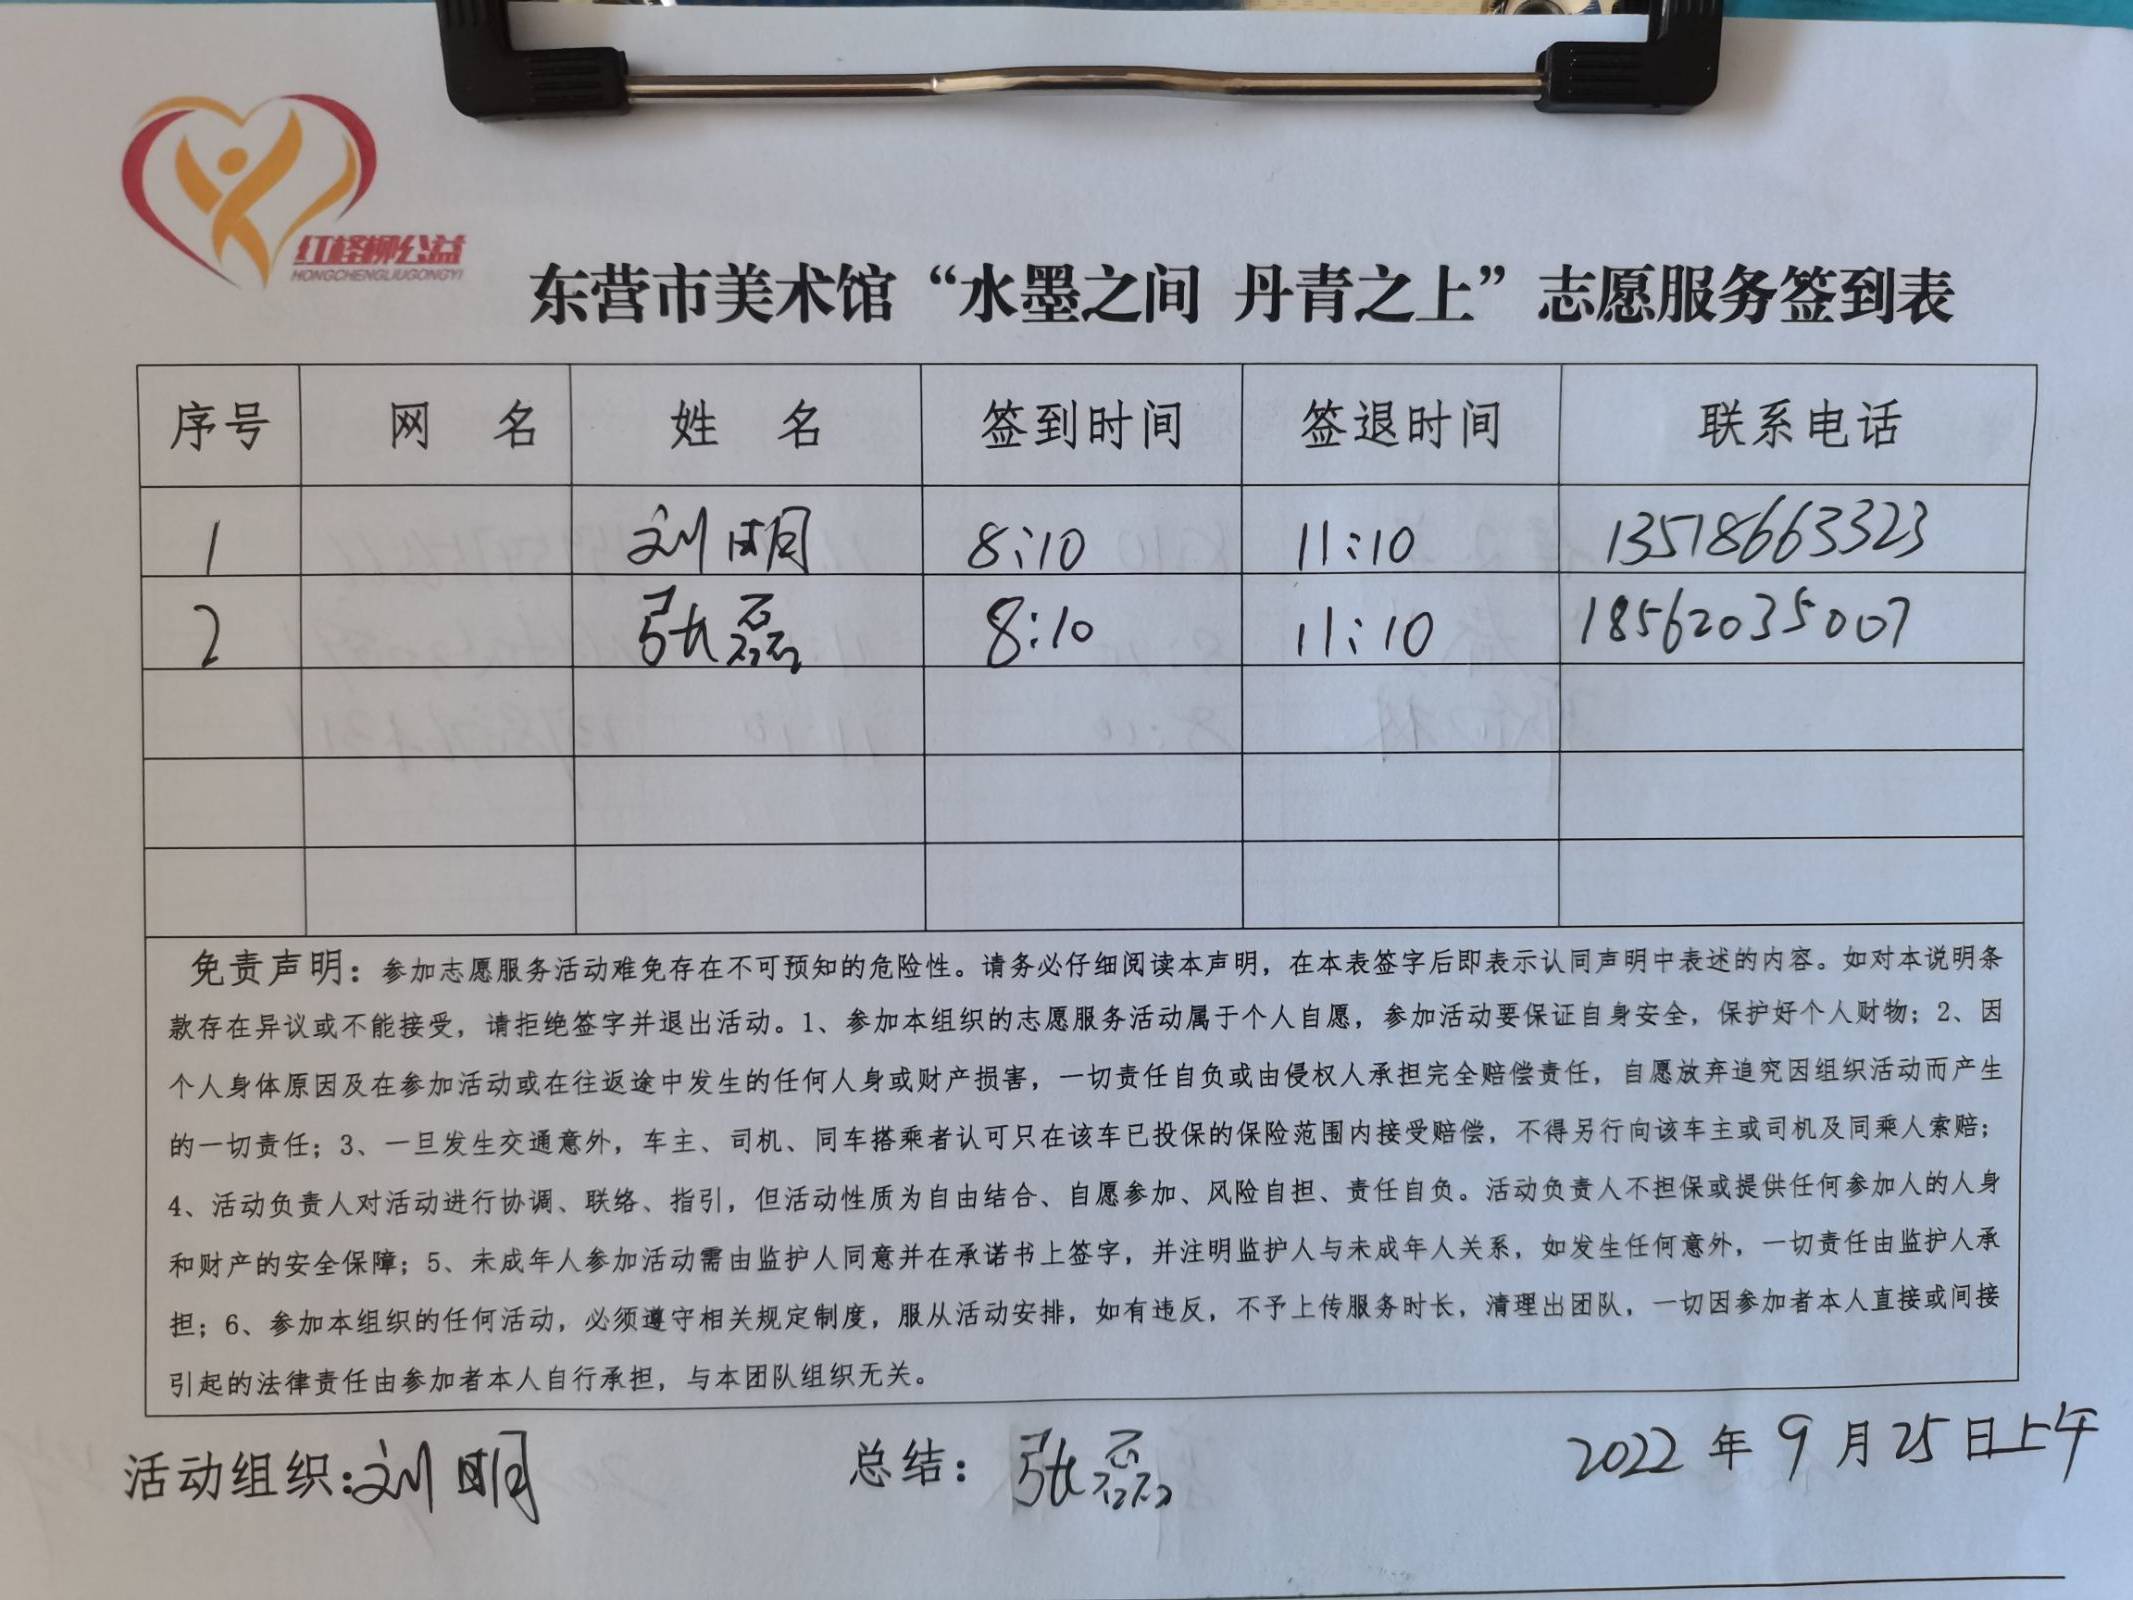 红柽柳公益
HONGCHENGLIUGONGYI
东营市美术馆“水墨之间 丹青之上”志愿服务签到表
序号 网 名 姓 名 签到时间 签退时间 联系电话
1 刘明 8:10 11:10 13518663323
2 张磊 8:10 11:10 18562035007
免责声明：参加志愿服务活动难免存在不可预知的危险性。请务必仔细阅读本声明，在本表签字后即表示认同声明中表述的内容。如对本说明条
款存在异议或不能接受，请拒绝签字并退出活动。1、参加本组织的志愿服务活动属于个人自愿，参加活动要保证自身安全，保护好个人财物；2、因
个人身体原因及在参加活动或在往返途中发生的任何人身或财产损害，一切责任自负或由侵权人承担完全赔偿责任，自愿放弃追究因组织活动而产生
的一切责任；3、一旦发生交通意外，车主、司机、同车搭乘者认可只在该车已投保的保险范围内接受赔偿，不得另行向该车主或司机及同乘人索赔；
4、活动负责人对活动进行协调、联络、指引，但活动性质为自由结合、自愿参加、风险自担、责任自负。活动负责人不担保或提供任何参加人的人身
和财产的安全保障；5、未成年人参加活动需由监护人同意并在承诺书上签字，并注明监护人与未成年人关系，如发生任何意外，一切责任由监护人承
担；6、参加本组织的任何活动，必须遵守相关规定制度，服从活动安排，如有违反，不予上传服务时长，清理出团队，一切因参加者本人直接或间接
引起的法律责任由参加者本人自行承担，与本团队组织无关。
活动组织：刘明 总结：张磊 2022年9月25日上午